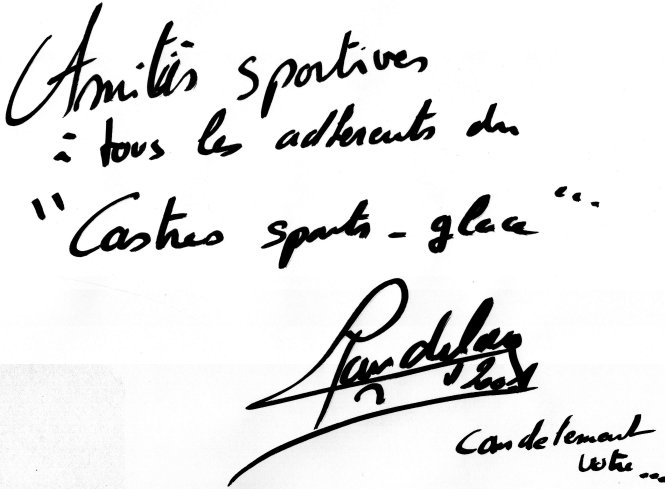 Amitiés sportives
à tous les adherents du
"Castres sports - glace"...
Candeloro
2001
Candelement
votre ...